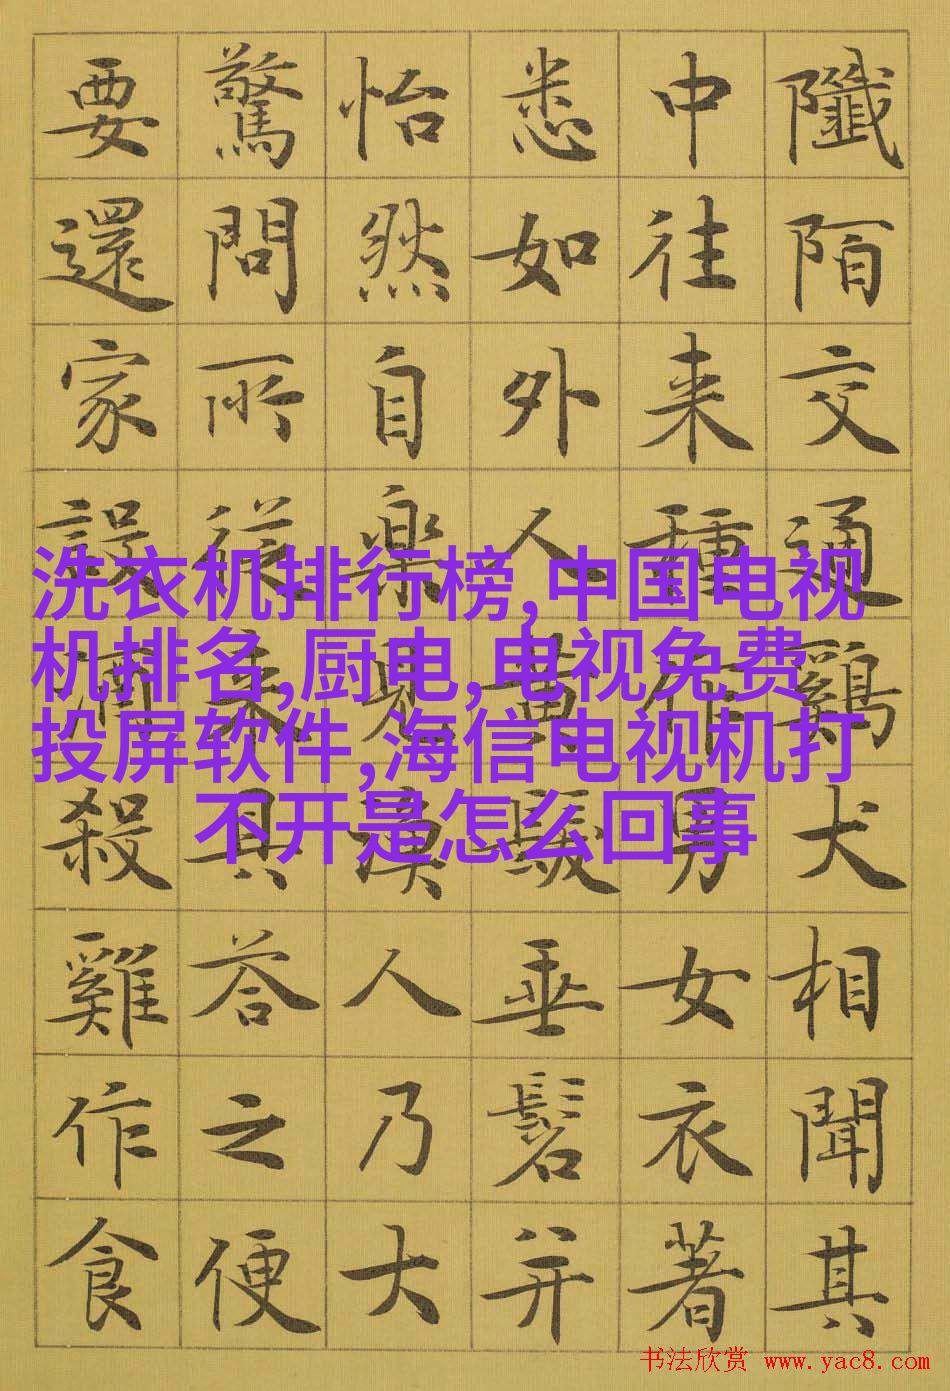 陌交通鷄犬相聞其
中往来種作男女衣著
悉如外人黄髮垂髫并
怡然自楽見漁人乃大
驚問所從来具荅之便
要還家設酒殺雞作食
洗衣机排行榜,中国电视
机排名,厨电,电视免费
投屏软件,海信电视机打
不开是怎么回事
书法欣赏 www.yac8.com